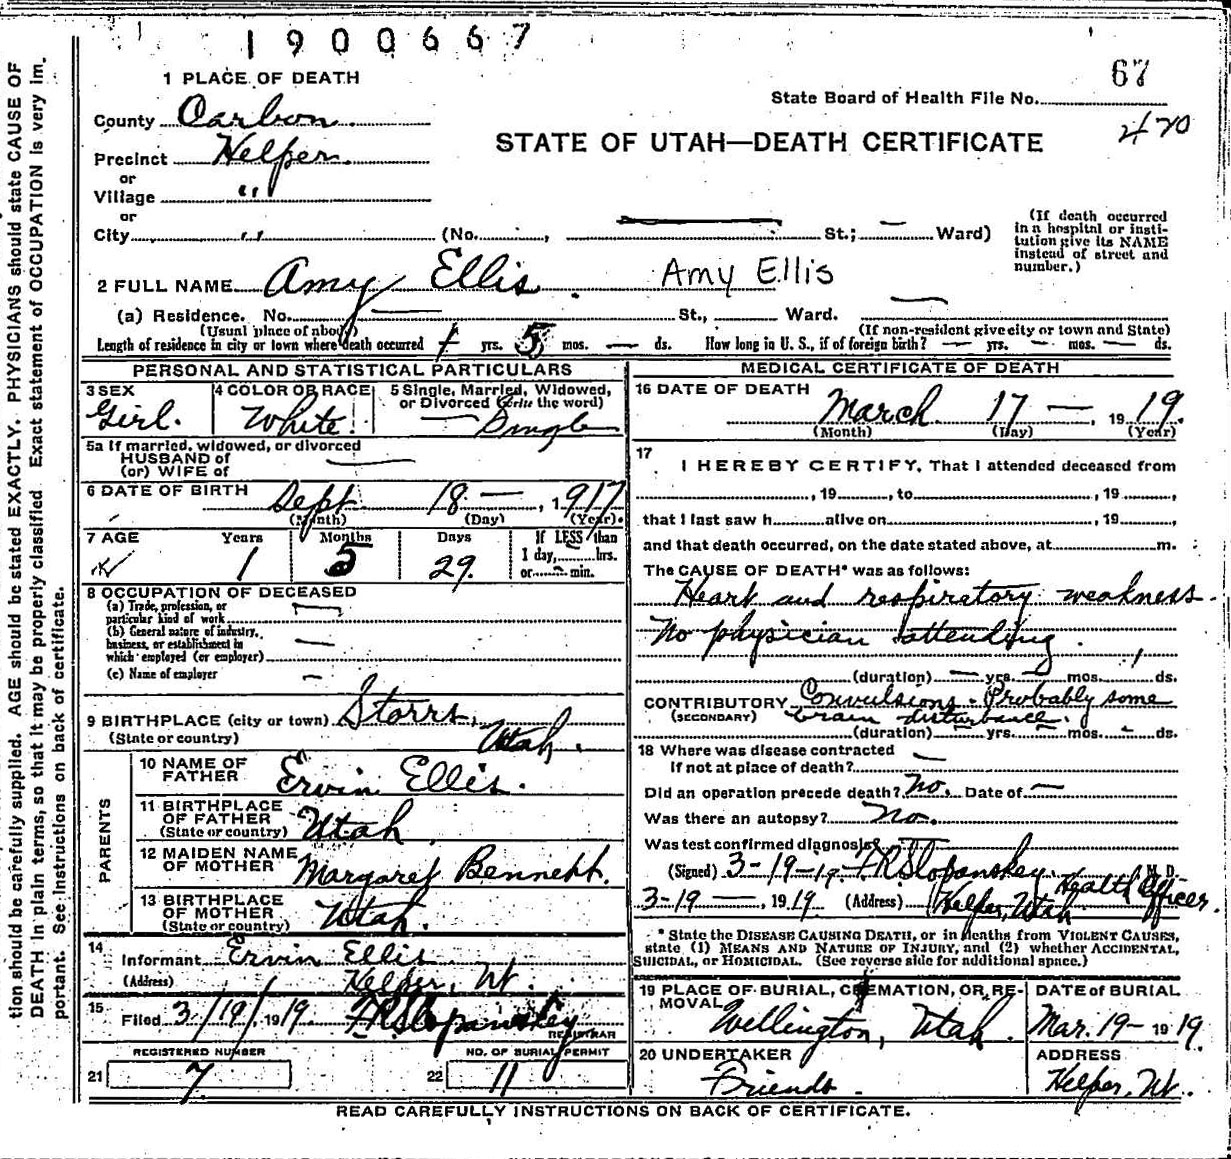 1900667
1 PLACE OF DEATH
67
State Board of Health File No.
470
County Carbon
STATE OF UTAH—DEATH CERTIFICATE
Precinct Helper
or
Village " "
or
City " " (No. , St.; — Ward)
(If death occurred in a hospital or institution give its NAME instead of street and number.)
2 FULL NAME Amy Ellis. Amy Ellis
(a) Residence. No. St., Ward.
(Usual place of abode) (If non-resident give city or town and State)
Length of residence in city or town where death occurred 1 yrs. 5 mos. — ds. How long in U. S., if of foreign birth? — yrs. — mos. — ds.
PERSONAL AND STATISTICAL PARTICULARS
3 SEX Girl.
4 COLOR OR RACE White
5 Single, Married, Widowed, or Divorced (Write the word) — Single
5a If married, widowed, or divorced
HUSBAND of
(or) WIFE of —
6 DATE OF BIRTH Sept 18 — , 1917
(Month) (Day) (Year).
7 AGE Years Months Days If LESS than
1 5 29 1 day, hrs.
or min.
8 OCCUPATION OF DECEASED
(a) Trade, profession, or
particular kind of work
(b) General nature of industry,
business, or establishment in
which employed (or employer)
(c) Name of employer
9 BIRTHPLACE (city or town) Storrs,
(State or country) Utah.
PARENTS
10 NAME OF FATHER Ervin Ellis.
11 BIRTHPLACE OF FATHER (State or country) Utah
12 MAIDEN NAME OF MOTHER Margaret Bennett.
13 BIRTHPLACE OF MOTHER (State or country) Utah.
14 Informant Ervin Ellis
(Address) Helper, Ut.
15 Filed 3/19/, 1919. F.R. Slopanskey
REGISTRAR
REGISTERED NUMBER NO. OF BURIAL PERMIT
21 7 22 11
MEDICAL CERTIFICATE OF DEATH
16 DATE OF DEATH March 17 — 1919.
(Month) (Day) (Year)
17 I HEREBY CERTIFY, That I attended deceased from
, 19 , to , 19 ,
that I last saw h alive on , 19 ,
and that death occurred, on the date stated above, at m.
The CAUSE OF DEATH* was as follows:
Heart and respiratory weakness.
No physician attending.
(duration) — yrs. mos. 1 ds.
CONTRIBUTORY Convulsions. Probably some
(SECONDARY) brain disturbance.
(duration) — yrs. — mos. — ds.
18 Where was disease contracted
If not at place of death? —
Did an operation precede death? No. Date of —
Was there an autopsy? No.
Was test confirmed diagnosis
(Signed) 3-19-19 F.R. Slopanskey. M. D.
Health Officer.
3-19 — , 1919. (Address) Helper, Utah
* State the DISEASE CAUSING DEATH, or in deaths from VIOLENT CAUSES,
state (1) MEANS AND NATURE OF INJURY, and (2) whether ACCIDENTAL,
SUICIDAL, or HOMICIDAL. (See reverse side for additional space.)
19 PLACE OF BURIAL, CREMATION, OR REMOVAL Wellington, Utah.
DATE of BURIAL Mar. 19 – 1919.
20 UNDERTAKER Friends.
ADDRESS Helper, Ut.
READ CAREFULLY INSTRUCTIONS ON BACK OF CERTIFICATE.
tion should be carefully supplied. AGE should be stated EXACTLY. PHYSICIANS should state CAUSE OF
DEATH in plain terms, so that it may be properly classified. Exact statement of OCCUPATION is very im-
portant. See instructions on back of certificate.